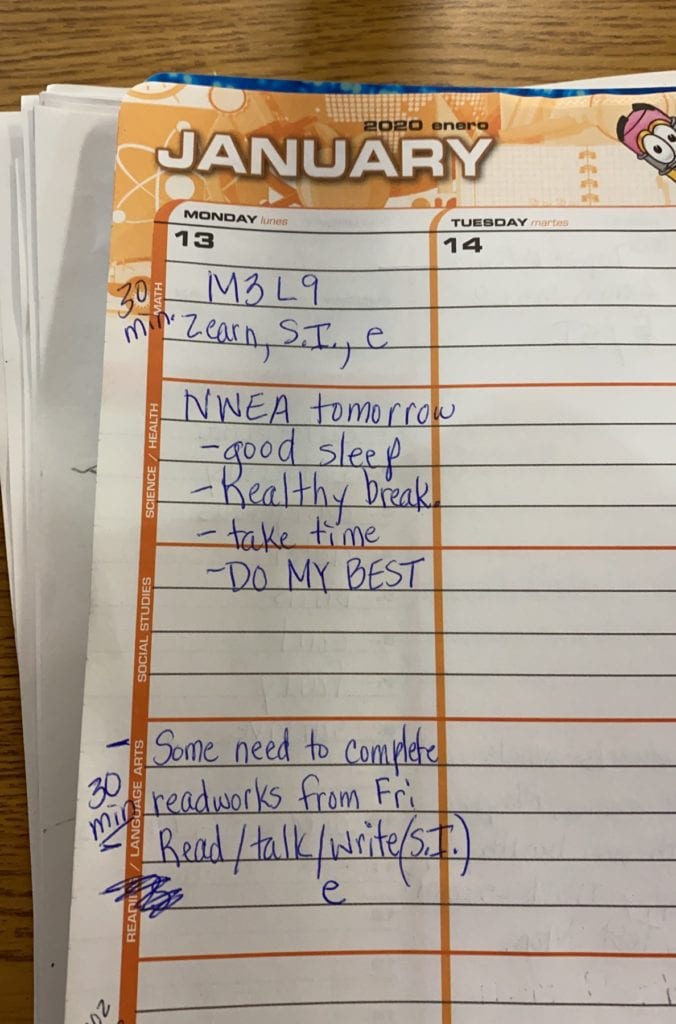 2020 enero
JANUARY
MONDAY lunes
TUESDAY martes
13
14
MATH
30
min.
M3 L9
Zearn, S.I., e
SCIENCE / HEALTH
NWEA tomorrow
-good sleep
-Healthy break.
- take time
SOCIAL STUDIES
-DO MY BEST
READING / LANGUAGE ARTS
30
min
- Some need to complete
readworks from Fri.
Read/talk/write(S.I.)
e